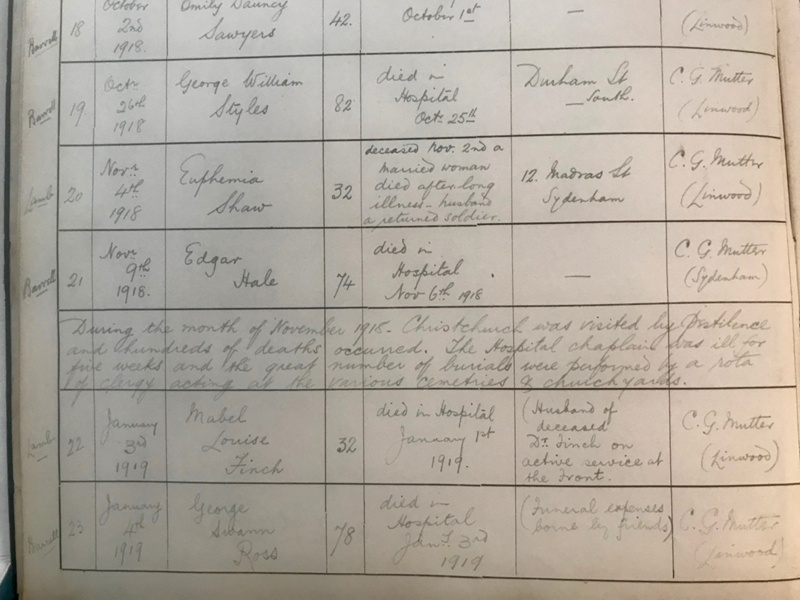 October Emily Dauncy October 1st
Barrell 18 2nd Sawyers 42. — (Linwood)
1918.
Octr George William died in Durham St C. G. Mutter
Barrell 19 26th Styles 82 Hospital — South. (Linwood)
1918 Octr 25th
Novr Euphemia deceased Nov. 2nd a 12. Madras St C. G. Mutter
Lamb 20 4th Shaw 32 married woman Sydenham (Linwood)
1918 died after long
illness - husband
a returned soldier.
Novr Edgar died in C. G. Mutter
Barrell 21 9th Hale 74 Hospital — (Sydenham)
1918. Nov 6th 1918
During the month of November 1918. Christchurch was visited by Pestilence
and hundreds of deaths occurred. The Hospital chaplain was ill for
five weeks and the great number of burials were performed by a rota
of clergy acting at the various cemetries & churchyards.
January Mabel died in Hospital (Husband of C. G. Mutter
Lamb 22 3rd Louise 32 January 1st deceased (Linwood)
1919 Finch 1919. Dr. Finch on
active service at
the Front.
January George died in (Funeral expenses C. G. Mutter
Barrell 23 4th Swann 78 Hospital borne by friends) (Linwood)
1919 Ross Jany. 3rd
1919